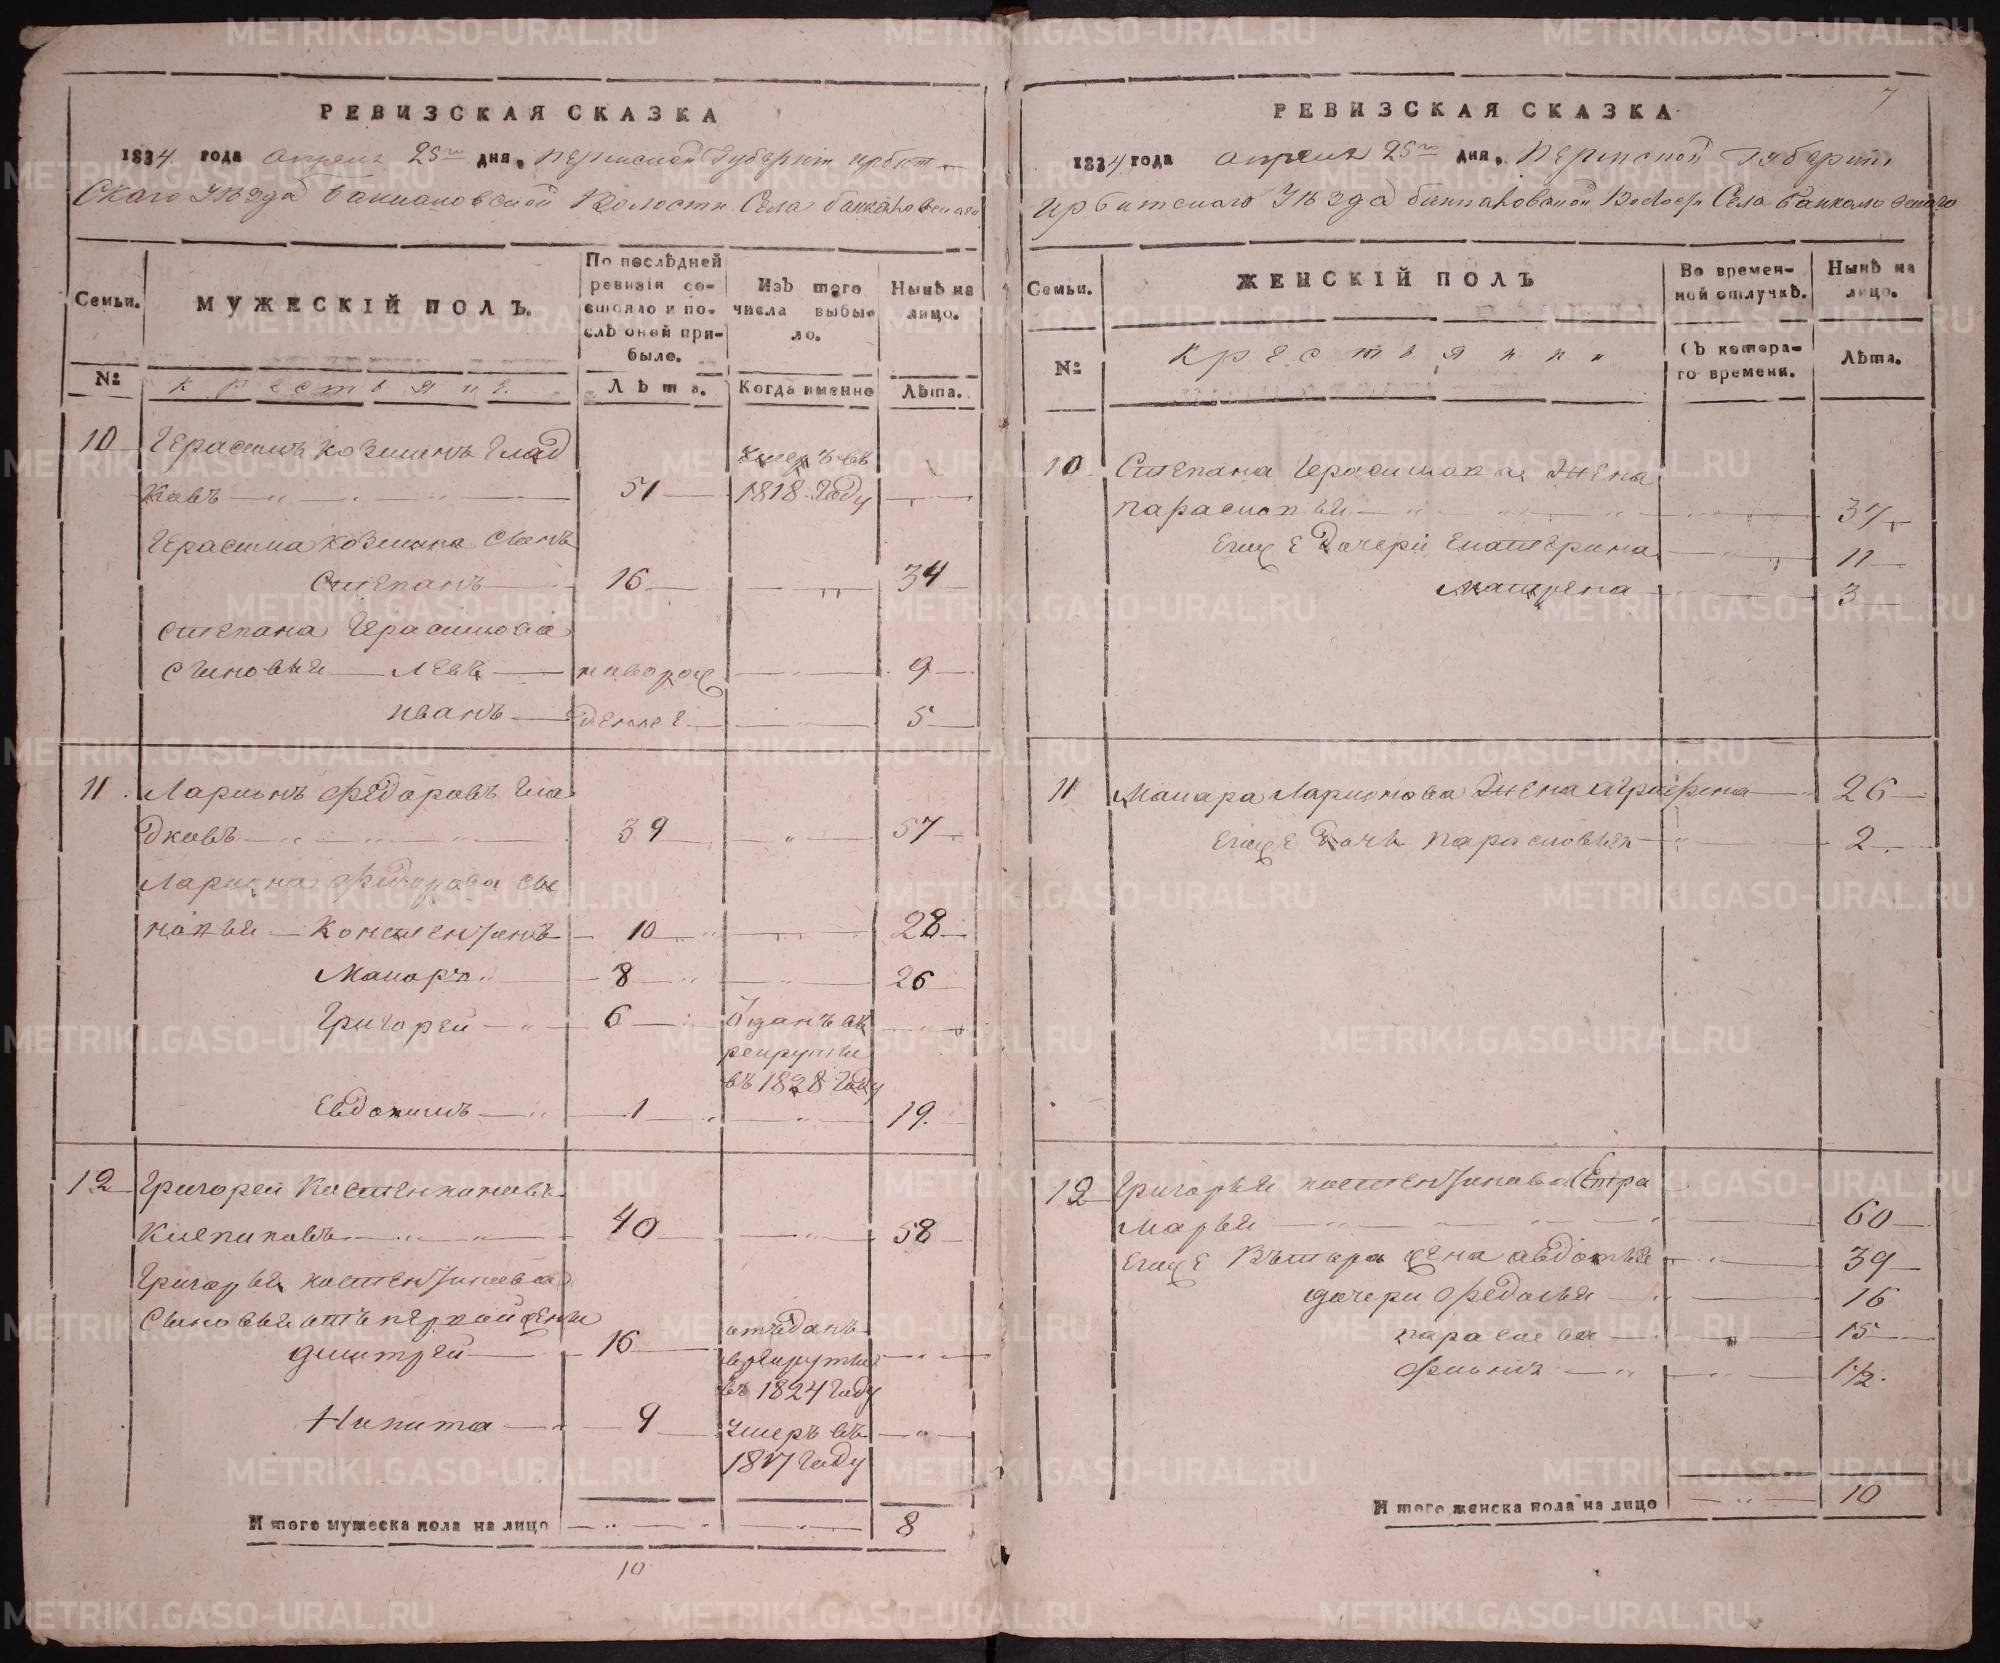 7
РЕВИЗСКАЯ СКАЗКА
1834. года апреля 25го дня, Пермской Губернiи Ирбит-
скаго Уезда Баикаловской Волости Села Баикаловскаго
Семьи.
МУЖЕСКIЙ ПОЛЪ.
По послѣдней ревизiи со-
стояло и по-
слѣ оней при-
было.
Изъ того
числа выбы-
ло.
Нынѣ на
лицо.
№
крестьяне
Лѣта.
Когда именно
Лѣта.
10 Герасимъ Козминъ Глад
ковъ 51 умеръ въ 1818 году
Герасима Козмина сынъ
Степанъ 16 34
Степана Герасимова
сыновьи Левъ новорож 9
Иванъ денные 5
11 Ларионъ Федоровъ Гла
дковъ 39 57
Лариона Федорова сы
новьи Констентинъ 10 28
Макаръ 8 26
Григорей 6 Отданъ въ
рекруты
въ 1828 году
Евдокимъ 1 19.
12 Григорей Костентиновъ
40 58
Григорья Костентинова
Сыновьи отъ первой жены
Дмитрей 16 отъданъ
в рекруты
въ 1824 году
Никита 9 умеръ въ
1817 году
Итого мужеска пола на лицо 8
10
РЕВИЗСКАЯ СКАЗКА
1834 года апреля 25го дня, Пермской Губернiи
Ирбитскаго Уезда Баикаловской Волости Села Баикаловскаго
Семьи.
ЖЕНСКIЙ ПОЛЪ
Во времен-
ной отлучкѣ.
Нынѣ на
лицо.
№
крестьянки
Съ котора-
го времени.
Лѣта.
10 Степана Герасимова жена
Парасковья 37
Еице Дочери Екатерина 11
Матрена 3
11 Макара Ларионова жена Агрофена 26
Еице Дочь Парасковья 2
12 Григорья Костентинова
Марья 60
Еице Вътора жена Авдотья 39
дочери Федосья 16
15
1/2.
Итого женска пола на лицо 10
METRIKI.GASO-URAL.RU